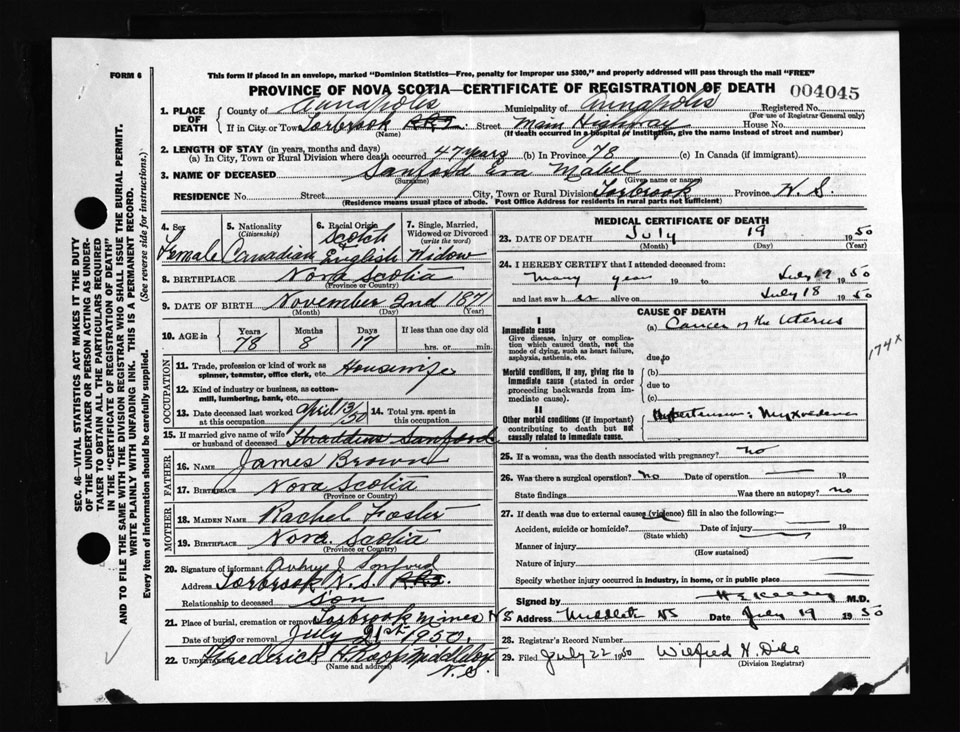 FORM 6
This form if placed in an envelope, marked "Dominion Statistics—Free, penalty for improper use $300," and properly addressed will pass through the mail "FREE"
PROVINCE OF NOVA SCOTIA—CERTIFICATE OF REGISTRATION OF DEATH 004045
1. PLACE OF DEATH County of Annapolis Municipality of Annapolis Registered No.
(For use of Registrar General only)
If in City or Town Torbrook Street Main Highway House No.
(Name) (If death occurred in a hospital or institution, give the name instead of street and number)
2. LENGTH OF STAY (in years, months and days)
(a) In City, Town or Rural Division where death occurred 47 years (b) In Province 78 (c) In Canada (if immigrant)
3. NAME OF DECEASED Sanford Eva Mabel
(Surname) (Given name or names)
RESIDENCE No. Street City, Town or Rural Division Torbrook Province N.S.
(Residence means usual place of abode. Post Office Address for residents in rural parts not sufficient)
4. Sex Female
5. Nationality (Citizenship) Canadian
6. Racial Origin Scotch English
7. Single, Married, Widowed or Divorced (write the word) Widow
8. BIRTHPLACE Nova Scotia
(Province or Country)
9. DATE OF BIRTH November 2nd 1871
(Month) (Day) (Year)
10. AGE in Years 78 Months 8 Days 17 If less than one day hrs. or min.
OCCUPATION
11. Trade, profession or kind of work as spinner, teamster, office clerk, etc. Housewife
12. Kind of industry or business, as cotton-mill, lumbering, bank, etc.
13. Date deceased last worked at this occupation April 13/50 14. Total yrs. spent in this occupation
15. If married give name of wife or husband of deceased Thaddius Sanford
FATHER
16. NAME James Brown
17. BIRTHPLACE Nova Scotia
(Province or Country)
MOTHER
18. MAIDEN NAME Rachel Foster
19. BIRTHPLACE Nova Scotia
(Province or Country)
20. Signature of informant J. Sanford
Address Torbrook N.S.
Relationship to deceased Son
21. Place of burial, cremation or removal Torbrook Mines N S
Date of burial or removal July 21st 1950.
22. UNDERTAKER Frederick H. Middleton N.S.
(Name and address)
MEDICAL CERTIFICATE OF DEATH
23. DATE OF DEATH July 19 1950
(Month) (Day) (Year)
24. I HEREBY CERTIFY that I attended deceased from:
many year 19 to July 19 1950
and last saw her alive on July 18 1950
CAUSE OF DEATH
I
Immediate cause
Give disease, injury or complication which caused death, not the mode of dying, such as heart failure, asphyxia, asthenia, etc.
(a) Cancer of the Uterus
due to
174x
Morbid conditions, if any, giving rise to immediate cause (stated in order proceeding backwards from immediate cause).
(b)
due to
(c)
II
Other morbid conditions (if important) contributing to death but not causally related to immediate cause.
Hypertension; Myxoedema
25. If a woman, was the death associated with pregnancy? no
26. Was there a surgical operation? No Date of operation 19
State findings Was there an autopsy? no
27. If death was due to external causes (violence) fill in also the following:—
Accident, suicide or homicide? Date of injury 19
(State which)
Manner of injury
(How sustained)
Nature of injury
Specify whether injury occurred in industry, in home, or in public place
Signed by M.D.
Address Middleton NS Date July 19 1950
28. Registrar's Record Number
29. Filed July 22 1950 Wilfred H.
(Division Registrar)
SEC. 46—VITAL STATISTICS ACT MAKES IT THE DUTY
OF THE UNDERTAKER OR PERSON ACTING AS UNDER-
TAKER TO OBTAIN ALL THE PARTICULARS REQUIRED
IN THE "CERTIFICATE OF REGISTRATION OF DEATH"
AND TO FILE THE SAME WITH THE DIVISION REGISTRAR WHO SHALL ISSUE THE BURIAL PERMIT.
WRITE PLAINLY WITH UNFADING INK. THIS IS A PERMANENT RECORD.
Every item of information should be carefully supplied. (See reverse side for instructions.)